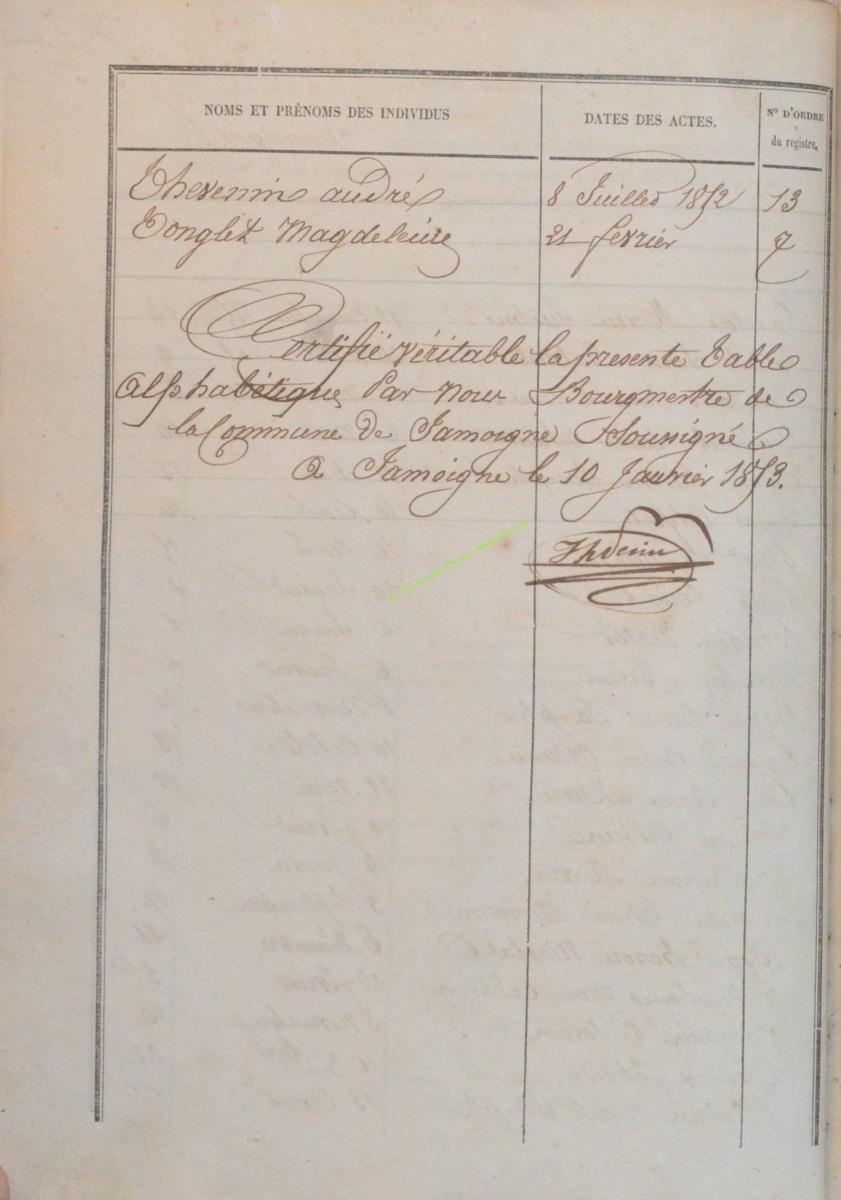 NOMS ET PRÉNOMS DES INDIVIDUS
DATES DES ACTES.
N° D'ORDRE
du registre.
Thevenin andré 8 Juillet 1852 13
Tonglet Magdeleine 21 fevrier 7
Certifié véritable la presente Table
Alphabétique Par Nous Bourgmestre de
la Commune de Jamoigne Soussigné
a Jamoigne le 10 Janvier 1853.